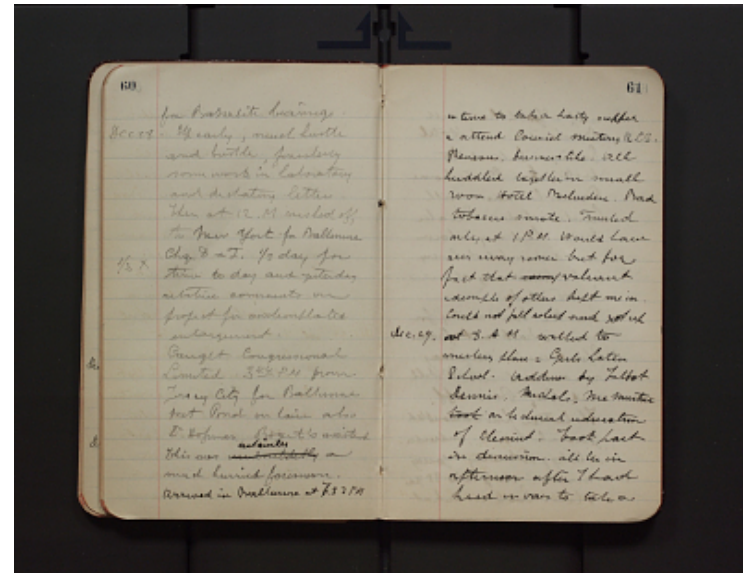 60
for Bakelite hearing.
Dec. 28. Up early, usual hustle
and bustle, 
some work in laboratory
and dictating letter
Then at 12. M rushed off
to New York for Baltimore
Chg. D & I. 1/2 day for
1/2 X time to day and yesterday
comments on
project for contemplated
enlargement.
Caught Congressional
Limited 3 P.M from
Jersey City for Baltimore
Pond on train also
D.
This was certainly a
much hurried
Arrived in Baltimore at 7.52 PM
61
in time to take a hasty supper
& attend Council meeting A.C.S.
Businesslike. All
huddled together in small
room. Hotel Belvedere. Bad
tobacco smoke. Finished
only at 1 P.M. Would have
away sooner but for
fact that
example of others kept me in.
Could not fall asleep until
Dec. 29. at 3. A.M. walled to
meeting place: Girls Latin
School. Address by Talbot
Dennis, 
took on technical education
of Chemist. Took part
in discussion. all in
afternoon after I had
tried in vain to take a